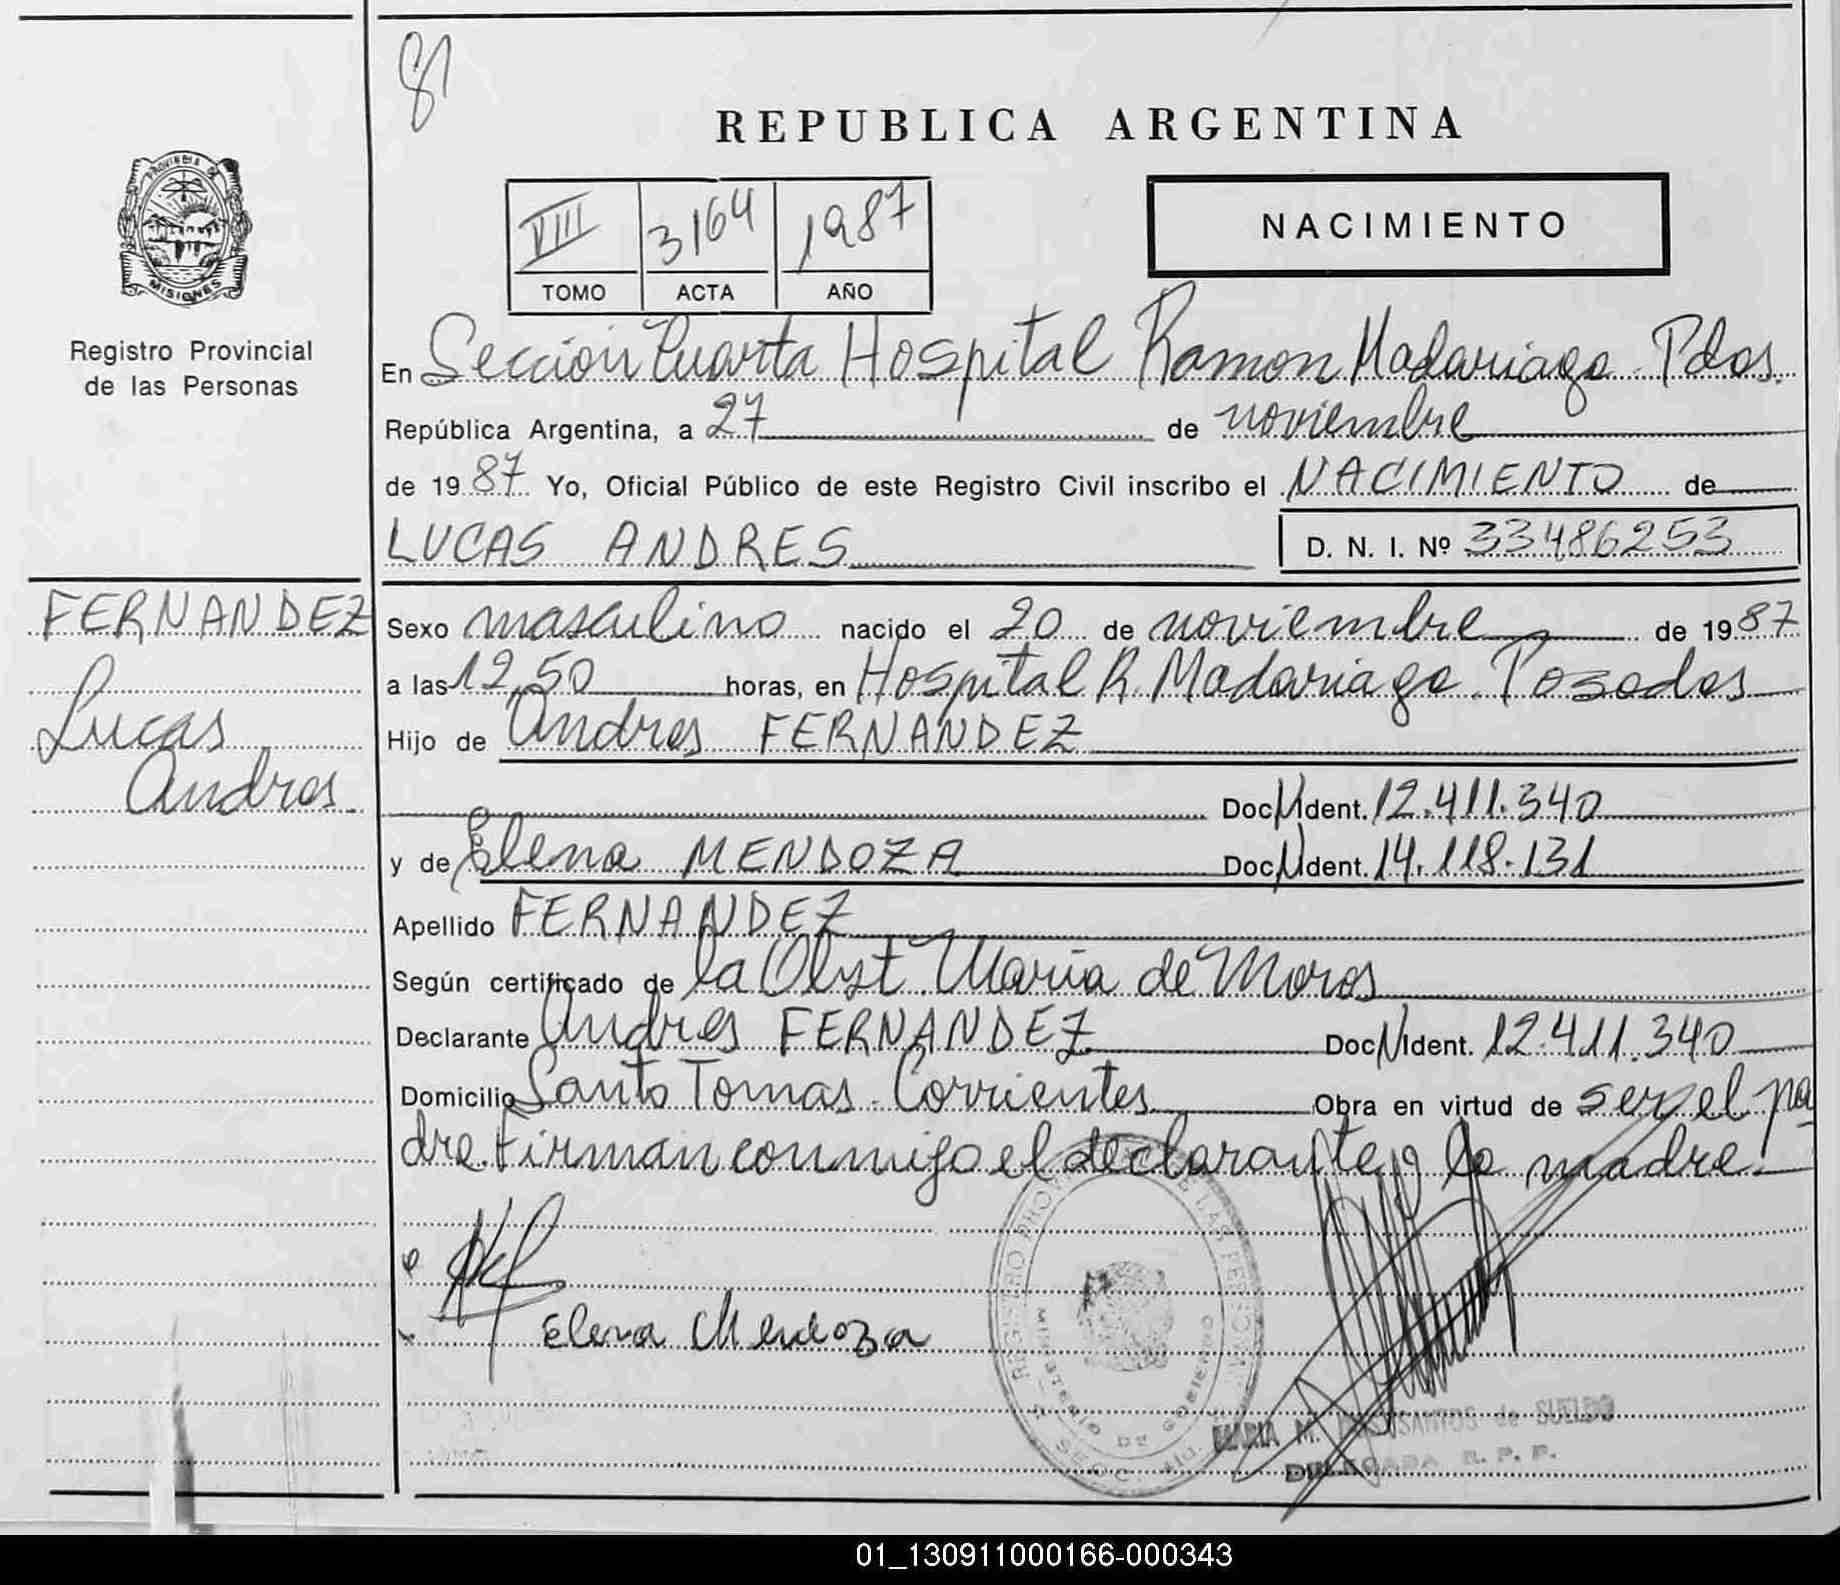 81
REPUBLICA ARGENTINA
PROVINCIA DE
MISIONES
VIII 3164 1987
TOMO ACTA AÑO
NACIMIENTO
Registro Provincial
de las Personas
En Sección Cuarta Hospital Ramon Madariaga. Pdas.
República Argentina, a 27 de noviembre
de 1987. Yo, Oficial Público de este Registro Civil inscribo el NACIMIENTO de
LUCAS ANDRES
D. N. I. Nº 33486253
FERNANDEZ
Lucas
Andres
Sexo masculino nacido el 20 de noviembre de 1987
a las 12,50 horas, en Hospital R. Madariaga. Posadas
Hijo de Andres FERNANDEZ
Doc. Ident. 12.411.340
y de Elena MENDOZA Doc. Ident. 14.118.131
Apellido FERNANDEZ
Según certificado de la Obst. Maria de Moros
Declarante Andres FERNANDEZ Doc. Ident. 12.411.340
Domicilio Santo Tomas. Corrientes Obra en virtud de ser el pa
dre. Firman conmigo el declarante y la madre.
Elena Mendoza
REGISTRO PROVINCIAL DE LAS PERSONAS
MINISTERIO DE GOBIERNO
MARIA M. DOS SANTOS de SUELDO
DELEGADA R. P. P.
01_130911000166-000343